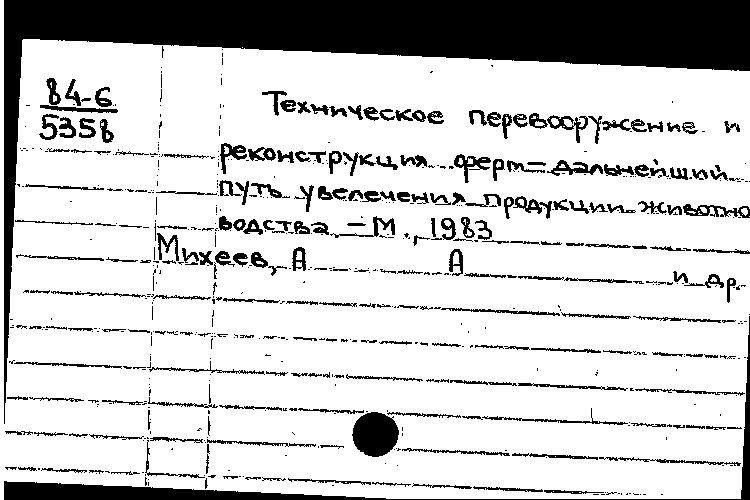 84-6
5358
Техническое перевооружение и
реконструкция ферм – дальнейший
путь увелечения продукции животно
водства. – М., 1983
Михеев, А А и др.